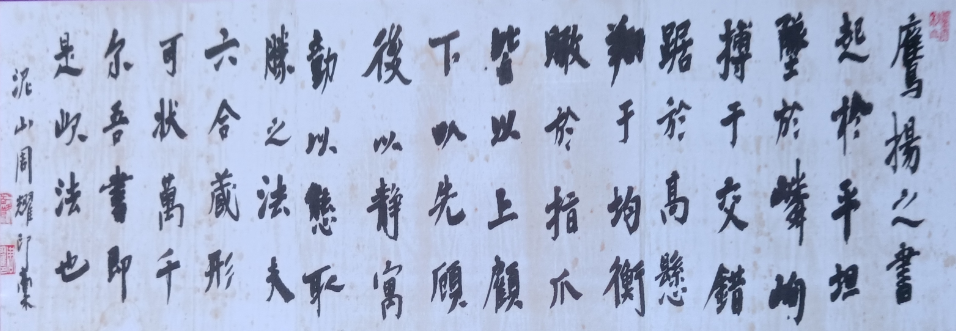 鷹揚之書
起於平坦
墜於嶙峋
搏于交錯
踞於高懸
翔于均衡
瞰於指爪
皆以上顧
下以先顧
後以静寓
動以態取
勝之法夫
六合蔵形
可状萬千
尔吾書即
是此法也
泥山周耀